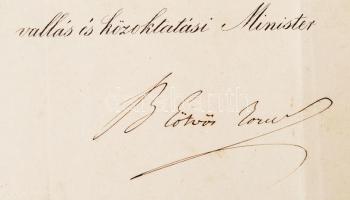 vallás és közoktatási Minister
B Eötvös József